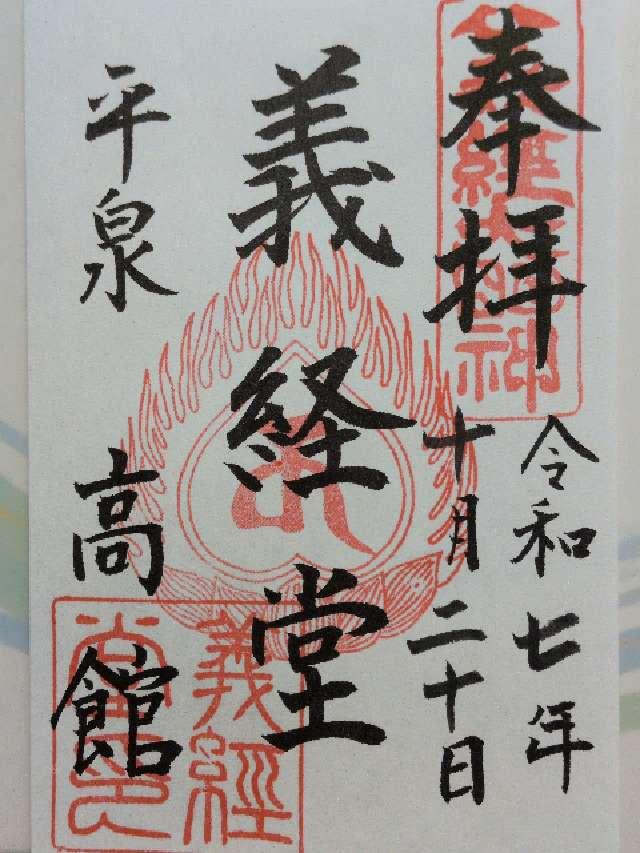 奉拝
令和七年
十月二十日
義経堂
平泉
高館
義經
堂印